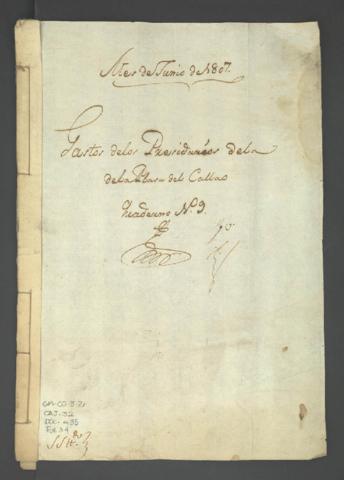 Mes de Junio de 1807.
Gastos delos Presidarios dela
dela Plasa del Callao
Quaderno N.º 9.
GM-CO-3-21
CAJ-32
DOC-35
Fol 34